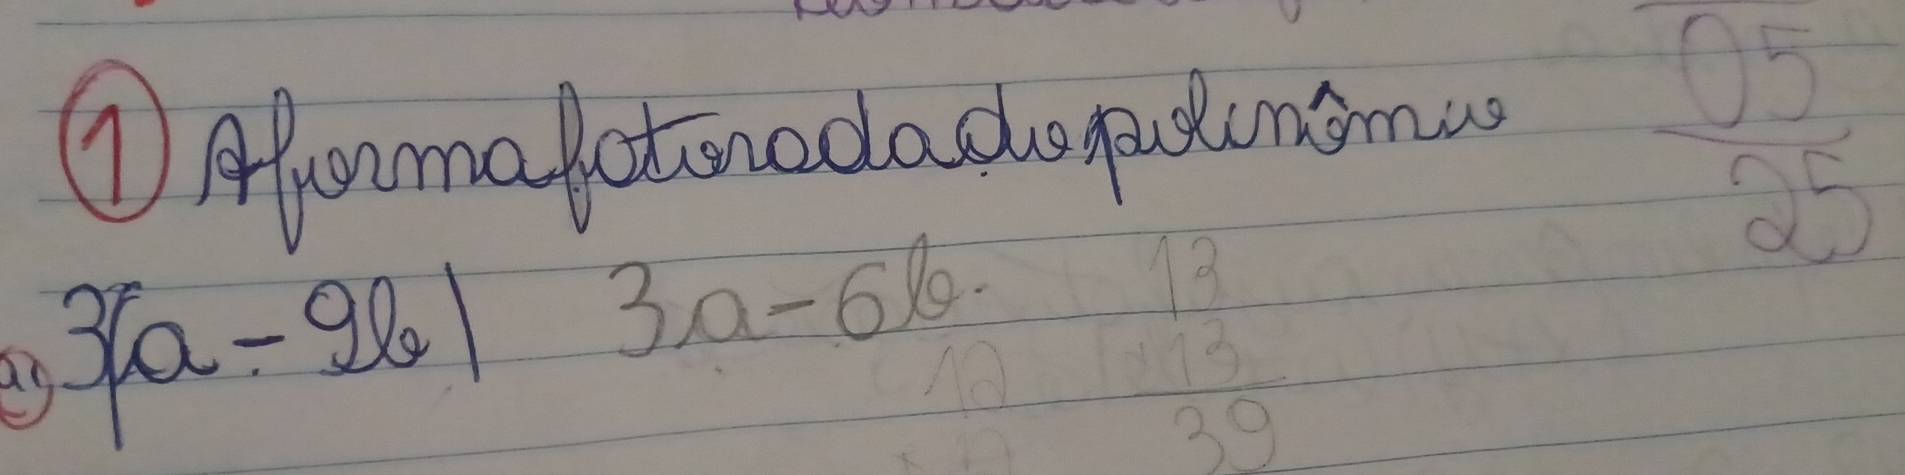 05
① A forma fatorada do polinômio
25
a) 3(a - 9b) 3a - 6b. 13
12 x 13
39